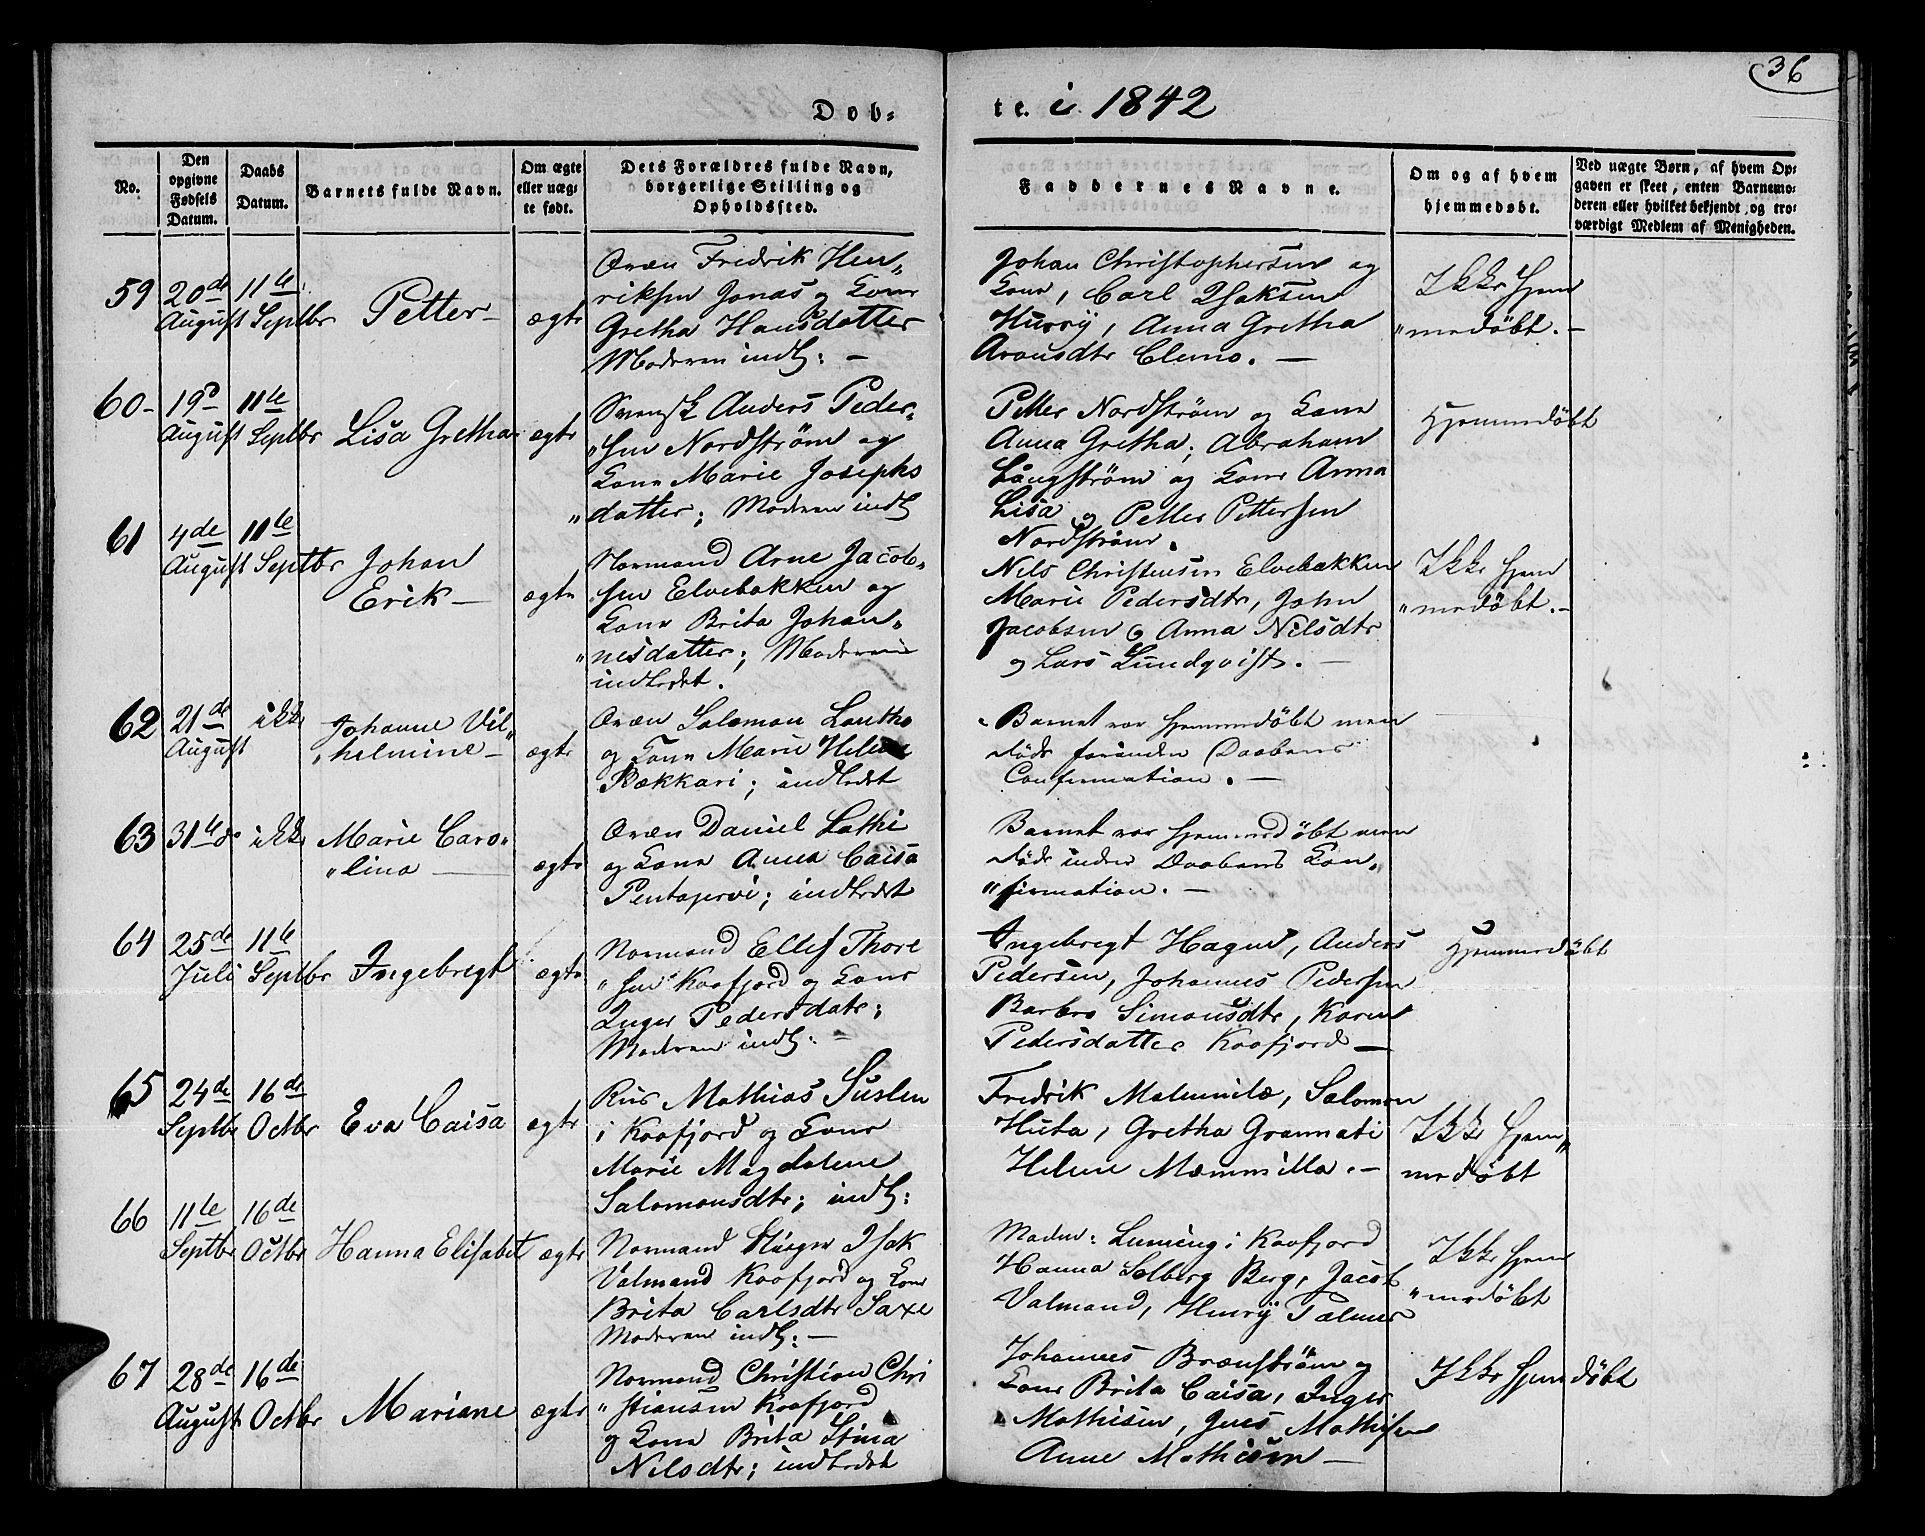 36
Døb-
te. i 1842
No.
Den
opgivne
Fødsels
Datum.
Daabs
Datum.
Barnets fulde Navn.
Om ægte
eller uæg-
te født.
Dets Forældres fulde Navn,
borgerlige Stilling og
Opholdssted.
Faddernes Navne.
Om og af hvem
hjemmedøbt.
Ved uægte Børn, af hvem Op-
gaven er skeet, enten Barnemo-
deren eller hvilket bekjendt, og tro-
værdigt Medlem af Menigheden.
59
20de
August
11te
Septbr
Petter
ægte
Qvæn Fredrik Hen-
riksen Jonas og Kone
Gretha Hansdatter
Moderen indl: -
Johan Christophersen og
Kone, Carl Isaksen
Hurry, Anna Gretha
Aronsdtr Clemo. -
Ikke hjem
"medøbt. -
60-
19de
August
11te
Septbr
Lisa Gretha
ægte
Svensk Anders Peder-
"sen Nordstrøm og
Kone Marie Josephs
"datter; Moderen indl
Petter Nordstrøm og Kone
Anna Gretha; Abraham
Långstrøm og Kone Anna
Lisa og Petter Pettersen
Nordstrøm.
Hjemmedøbt
61
4de
August
11te
Septbr
Johan
Erik -
ægte
Normand Arne Jacob-
sen Elvebakken og
Kone Brita Johan-
"nesdatter; Moderen
indledet.
Nils Christensen Elvebakken
Marie Pedersdtr, John
Jacobsen & Anna Nilsdtr
og Lars Lundqvist. -
Ikke hjem
"medøbt. -
62
21de
August
ikke
Johanne Vil-
"helmine -
ægte
Qvæn Salomon Lautho
og Kone Marie Helene
Bækkari; indledet
Barnet var hjemmedøbt men
døde forinden Daabens
Confirmation. -
63
31te do
ikke
Marie Caro-
"lina
ægte
Qvæn Daniel Lathi
og Kone Anna Caisa
Pentajervi; indledet
Barnet var hjemmedøbt men
døde inden Daabens Kon-
"firmation. -
64
25de
Juli
11te
Septbr
Ingebregt
ægte
Normand Ellef Thore
"sen Kaafjord og Kone
Inger Pedersdatr;
Moderen indl: -
Ingebregt Hagen, Anders
Pedersen, Johannes Pedersen
Barbro Simonsdtr, Karen
Pedersdatter Kaafjord -
Hjemmedøbt
65
24de
Septbr
16de
Octbr
Eva Caisa
ægte
Rus Mathias Suslen
i Kaafjord og Kone
Marie Magdalene
Salomonsdtr; indl:
Fredrik Malunilæ, Salomon
Huta, Gretha Grannati
Helene Mæmmilla. -
Ikke hjem"
medøbt
66
11te
Septbr
16de
Octbr
Hanna Elisabet
ægte
Normand Stiger Isak
Valmand Kaafjord og Kone
Brita Carlsdtr Saxe
Moderen indl: -
Madm: Luning i Kaafjord
Hanna Solberg Berg, Jacob
Valmand, Henry Palmer
Ikke hjem
"medøbt
67
28de
August
16de
Octbr
Mariane
ægte
Normand Christian Chri
"stiansen Kaafjord
og Kone Brita Stina
Nilsdtr; indledet
Johannes Brænstrøm og
Kone Brita Caisa, Inger
Mathisen, Jens Mathisen
Anne Mathisen -
Ikke hjemdøbt